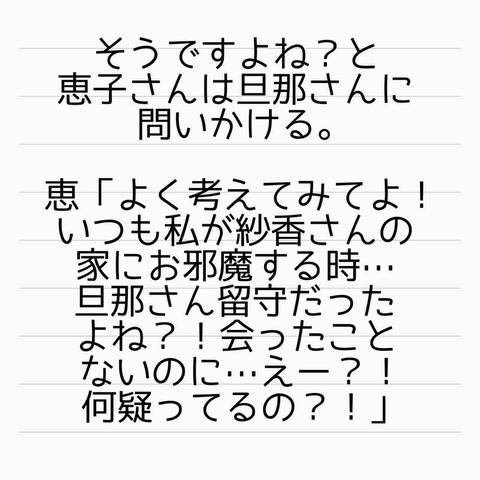 そうですよね？と
恵子さんは旦那さんに
問いかける。
恵「よく考えてみてよ！
いつも私が紗香さんの
家にお邪魔する時…
旦那さん留守だった
よね？！会ったこと
ないのに…えー？！
何疑ってるの？！」